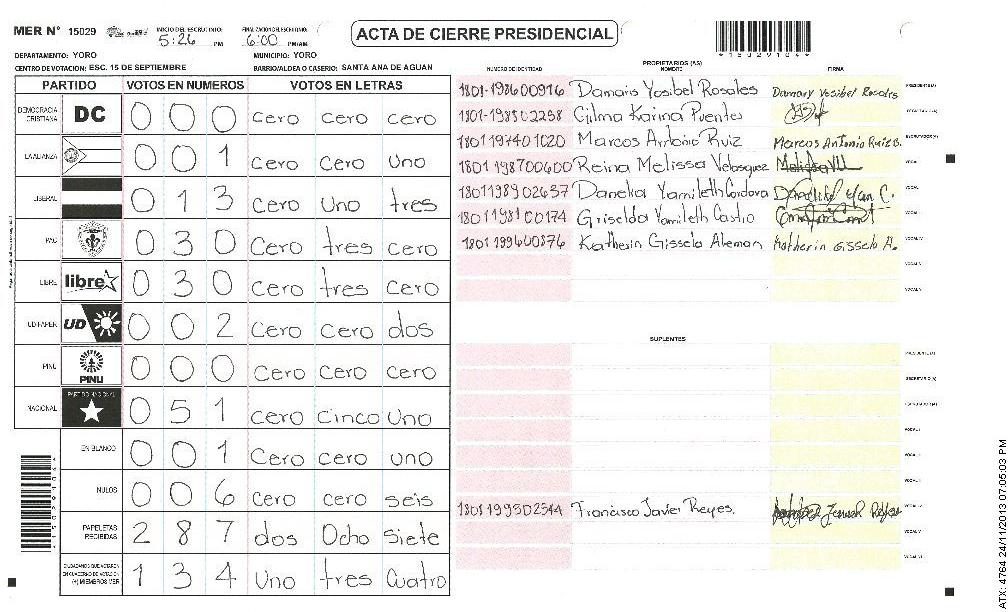 MER N° 15029 INICIO DEL ESCRUTINIO: 5:26 PM FINALIZACION DEL ESCRUTINIO: 6:00 PM/AM
ACTA DE CIERRE PRESIDENCIAL
DEPARTAMENTO: YORO MUNICIPIO: YORO
CENTRO DE VOTACION: ESC. 15 DE SEPTIEMBRE BARRIO/ALDEA O CASERIO: SANTA ANA DE AGUAN
PARTIDO VOTOS EN NUMEROS VOTOS EN LETRAS
DEMOCRACIA CRISTIANA DC 0 0 0 cero cero cero
LA ALIANZA 0 0 1 cero cero uno
LIBERAL 0 1 3 cero uno tres
PAC 0 3 0 cero tres cero
LIBRE libre 0 3 0 cero tres cero
UD/FAPER UD 0 0 2 cero cero dos
PINU PINU 0 0 0 cero cero cero
NACIONAL PARTIDO NACIONAL 0 5 1 cero cinco uno
EN BLANCO 0 0 1 cero cero uno
NULOS 0 0 6 cero cero seis
PAPELETAS RECIBIDAS 2 8 7 dos Ocho Siete
CIUDADANOS QUE VOTARON EN CUADERNO DE VOTACION (+) MIEMBROS MER 1 3 4 uno tres Cuatro
PROPIETARIOS (AS)
NUMERO DE IDENTIDAD NOMBRE FIRMA
1801-198600916 Damaris Yosibel Rosales Damary Yosibel Rosales PRESIDENTE(A)
1801-198502258 Gilma Karina Puentes SECRETARIO(A)
1801197401020 Marcos Antonio Ruiz Marcos Antonio Ruiz B. ESCRUTADOR(A)
1801198700600 Reina Melissa Velasquez VOCAL I
1801198902637 Danelia Yamileth Cordova VOCAL II
1801198100174 Griselda Yamileth Castro VOCAL III
1801199600876 Katherin Gissela Aleman Katherin Gissela A. VOCAL IV
VOCAL V
VOCAL VI
SUPLENTES
PRESIDENTE(A)
SECRETARIO(A)
ESCRUTADOR(A)
VOCAL I
VOCAL II
VOCAL III
1801199502544 Francisco Javier Reyes.
VOCAL V
VOCAL VI
ATX: 4764 24/11/2013 07:05:03 PM